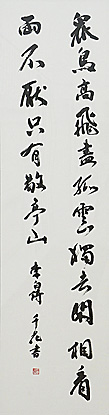 眾鳥高飛盡孤雲獨去閒相看
兩不厭只有敬亭山